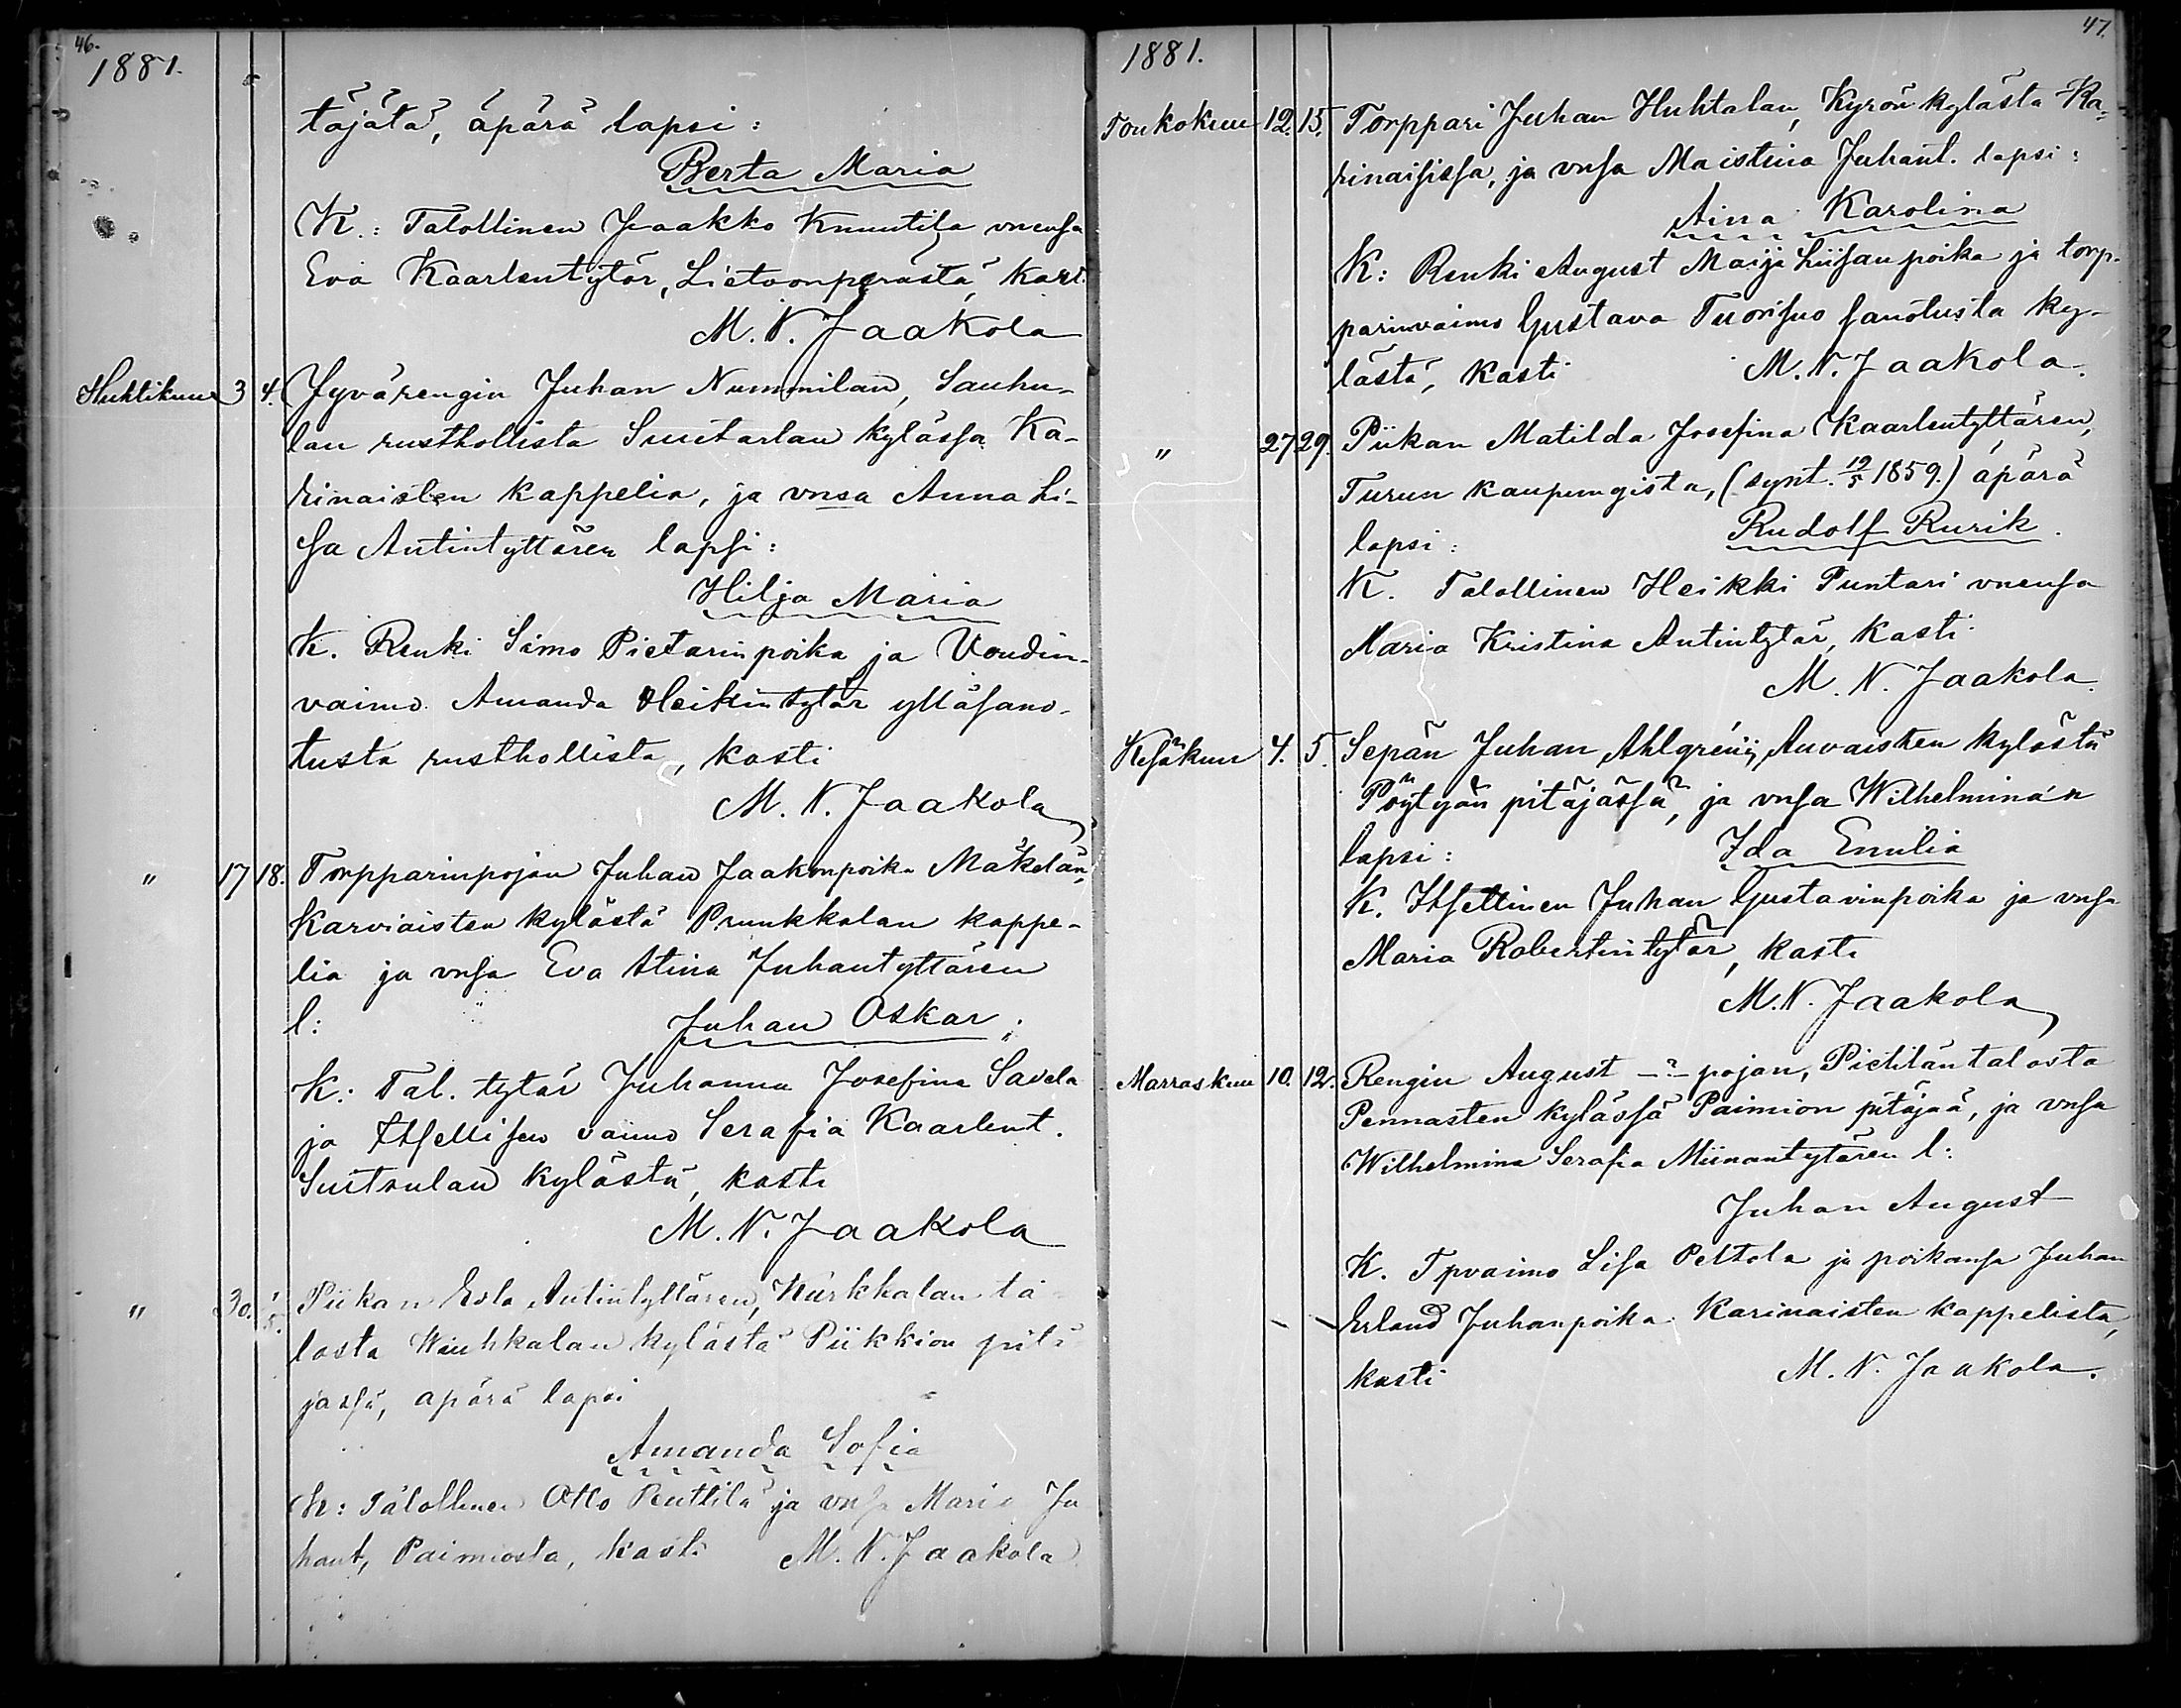 46.
1881.
täjätä, äpärä lapsi:
Berta Maria
K.: Talollinen Jaakko Knuutila vneusa
Eva Kaarlentytär, Lietoonperästä, kast.
M. N. Jaakola
Huhtikuu 3 4. Jyvärengin Juhan Nummilan, Sauhu-
lan rusthollista Suutarlan kylässä Ka-
rinaisten kappelia, ja vnsa Anna Li-
sa Antintyttären lapsi:
Hilja Maria
K. Renki Simo Pietarinpoika ja Voudin-
vaimo Amanda Heikintytär ylläsano-
tusta rusthollista, kasti
M. N. Jaakola
" 17 18. Torpparinpojan Juhan Jaakonpoika Mäkelän,
Karviaisten kylästä Prunkkalan kappe-
lia ja vnsa Eva Stina Juhantyttären
l: Juhan Oskar.
K: Tal. tytär Juhanna Josefina Savela
ja Itsellisen vaimo Serafia Kaarlent.
kylästä, kasti
M. N. Jaakola
" 30. 1/5. Piikan Evla Antintyttären, ta
losta kylästä Piikkion pitä
jässä, äpärä lapsi
Amanda Sofia
K: Talollinen Otto Penttilä ja vnsa Maria Ju
hant, Paimiosta, kasti M. N. Jaakola
47.
1881.
Toukokuu 12. 15. Torppari Juhan Huhtalan, Kyrön kylästä Ka-
rinaisissa, ja vnsa Maistina Juhant. lapsi:
Aina Karolina
K: Renki August Maija Liisanpoika ja torp-
parinvaimo Gustava Tuorisuo sanotusta ky-
lästä, kasti M. N. Jaakola.
" 27 29. Piikan Matilda Josefina Kaarlentyttären,
Turun kaupungista, (synt. 19/5 1859.) äpärä
lapsi: Rudolf Rurik.
K. Talollinen Heikki Puntari vneusa
Maria Kristina Antintytär, kasti
M. N. Jaakola.
Kesäkuu 4. 5. Sepän Juhan Ahlgrenin, Auvaisten kylästä
Pöytyän pitäjässä, ja vnsa Wilhelminan
lapsi: Ida Emilia
K. Itsellinen Juhan Gustavinpoika ja vnsa
Maria Robertintytär, kasti
M. N. Jaakola
Marraskuu 10. 12. Rengin August -?- pojan, Pietilän talosta
Pennasten kylässä Paimion pitäjää, ja vnsa
Wilhelmina Serafia Miinantytären l:
Juhan August
K. Tpvaimo Lisa Peltola ja poikansa Juhan
Erland Juhanpoika Karinaisten kappelista,
kasti M. N. Jaakola.